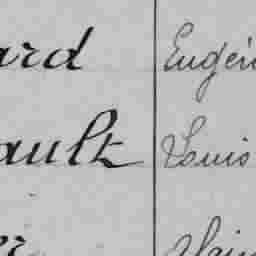 ard Eugén
ault Louis